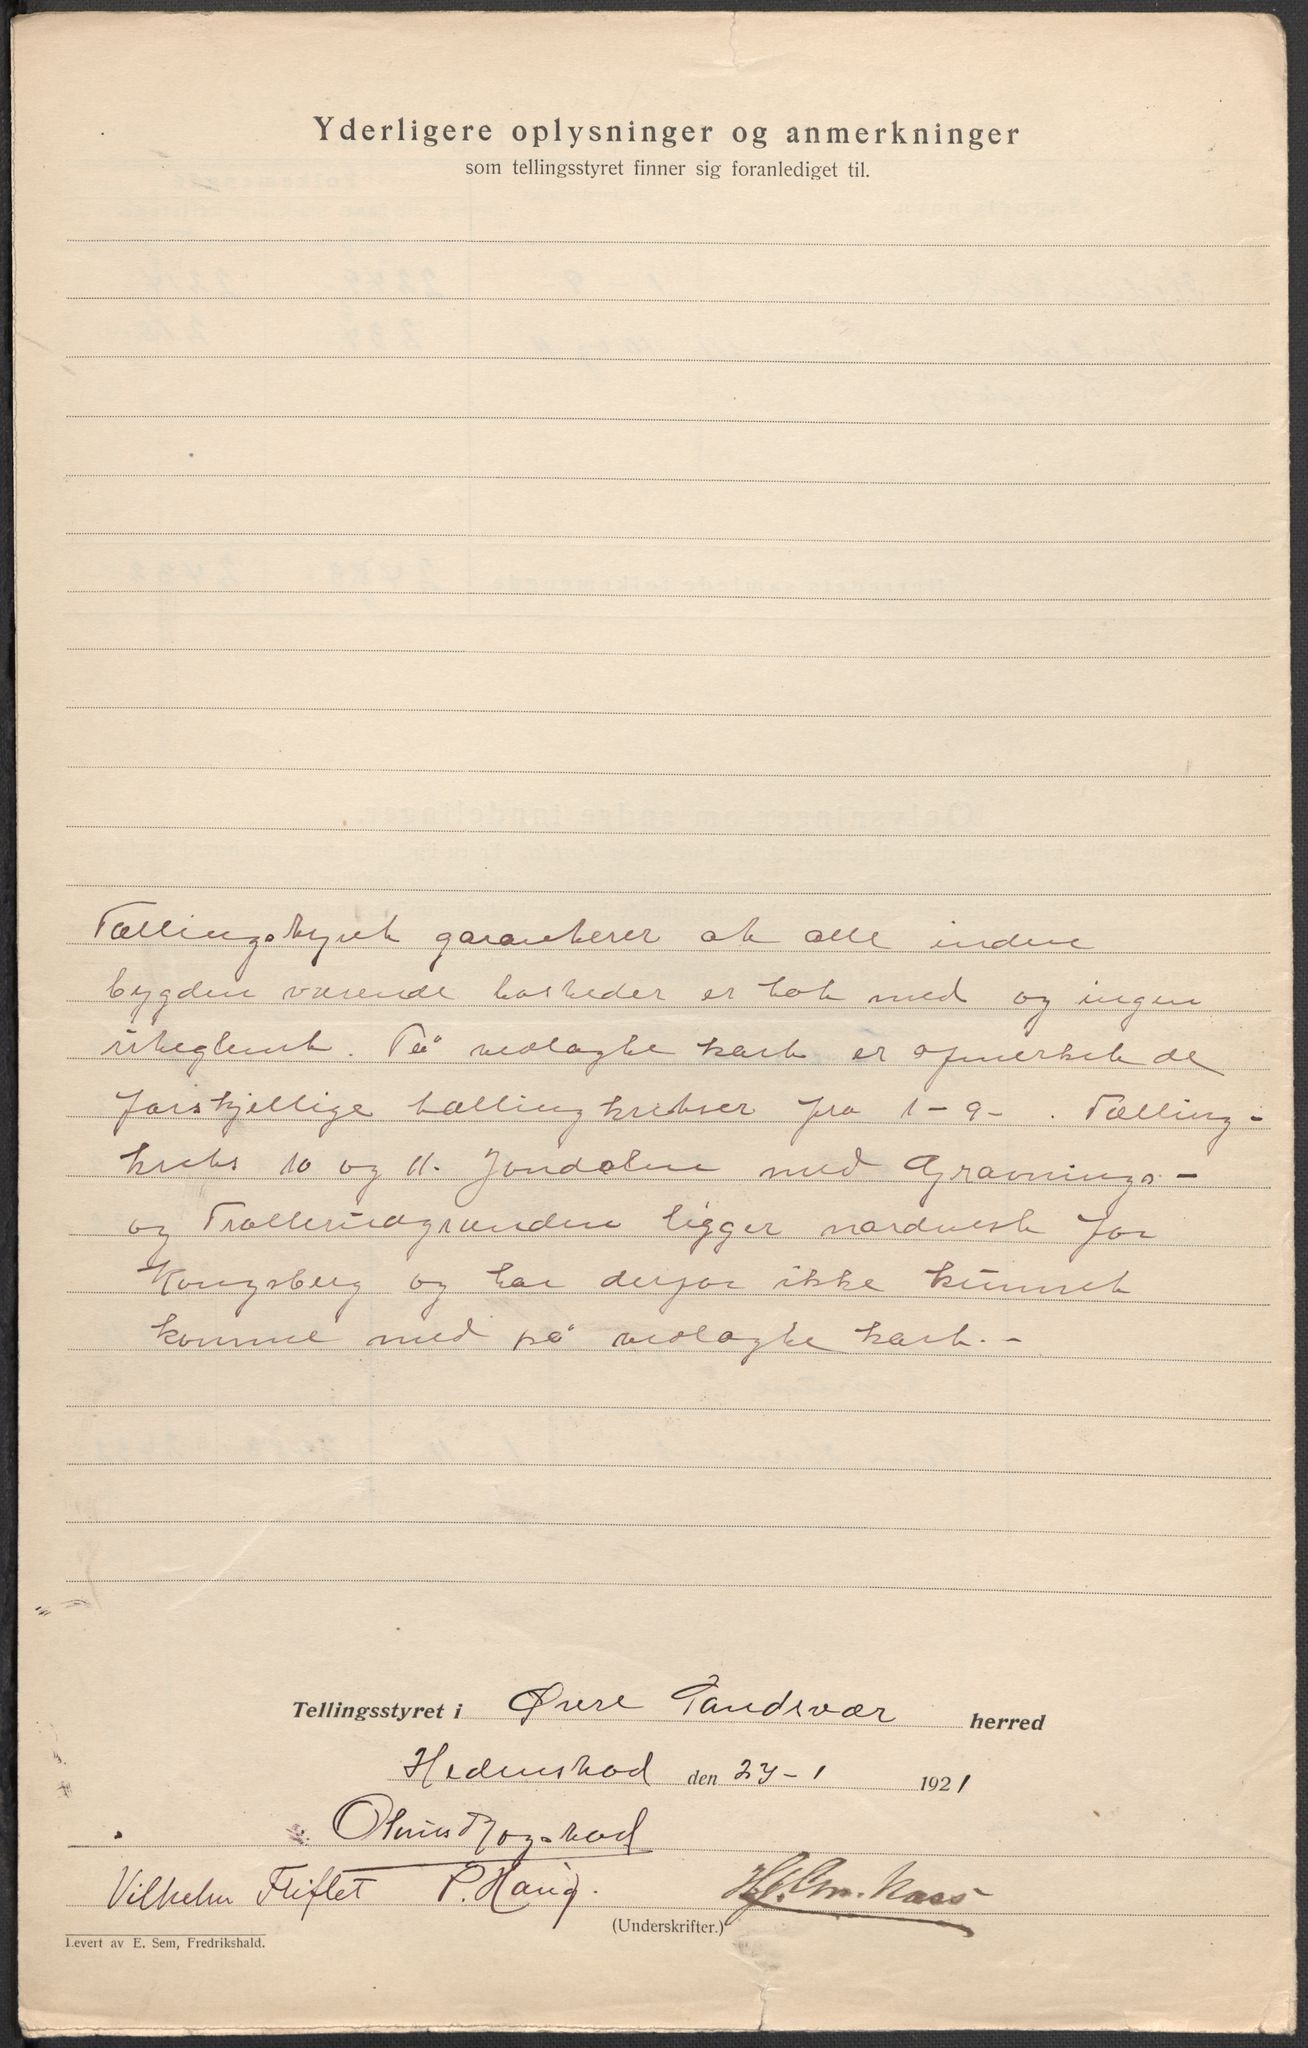 Yderligere oplysninger og anmerkninger
som tellingsstyret finner sig foranlediget til.
Tællingsstyret garanterer at alle inden
bygden værende bosteder er tat med og ingen
uteglemt. På vedlagte kart er opmerket de
forskjellige tællingkretser fra 1-9-. Tælling-
krets 10 og 11. Jondalen med Gravnings-
og Trollerudgrenden ligger nordvest for
Kongsberg og har derfor ikke kunnet
komme med på vedlagte kart.-
Tellingsstyret i Øvre Sandsvær herred
Hedenstad den 27-1 1921
Vilhelm Fliflet P. Haug.
(Underskrifter.)
Levert av E. Sem, Fredrikshald.